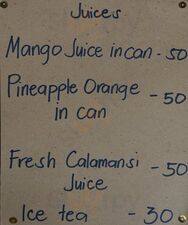 Juices
Mango Juice in can - 50
Pineapple Orange - 50
in can
Fresh Calamansi - 50
Juice
Ice tea - 30